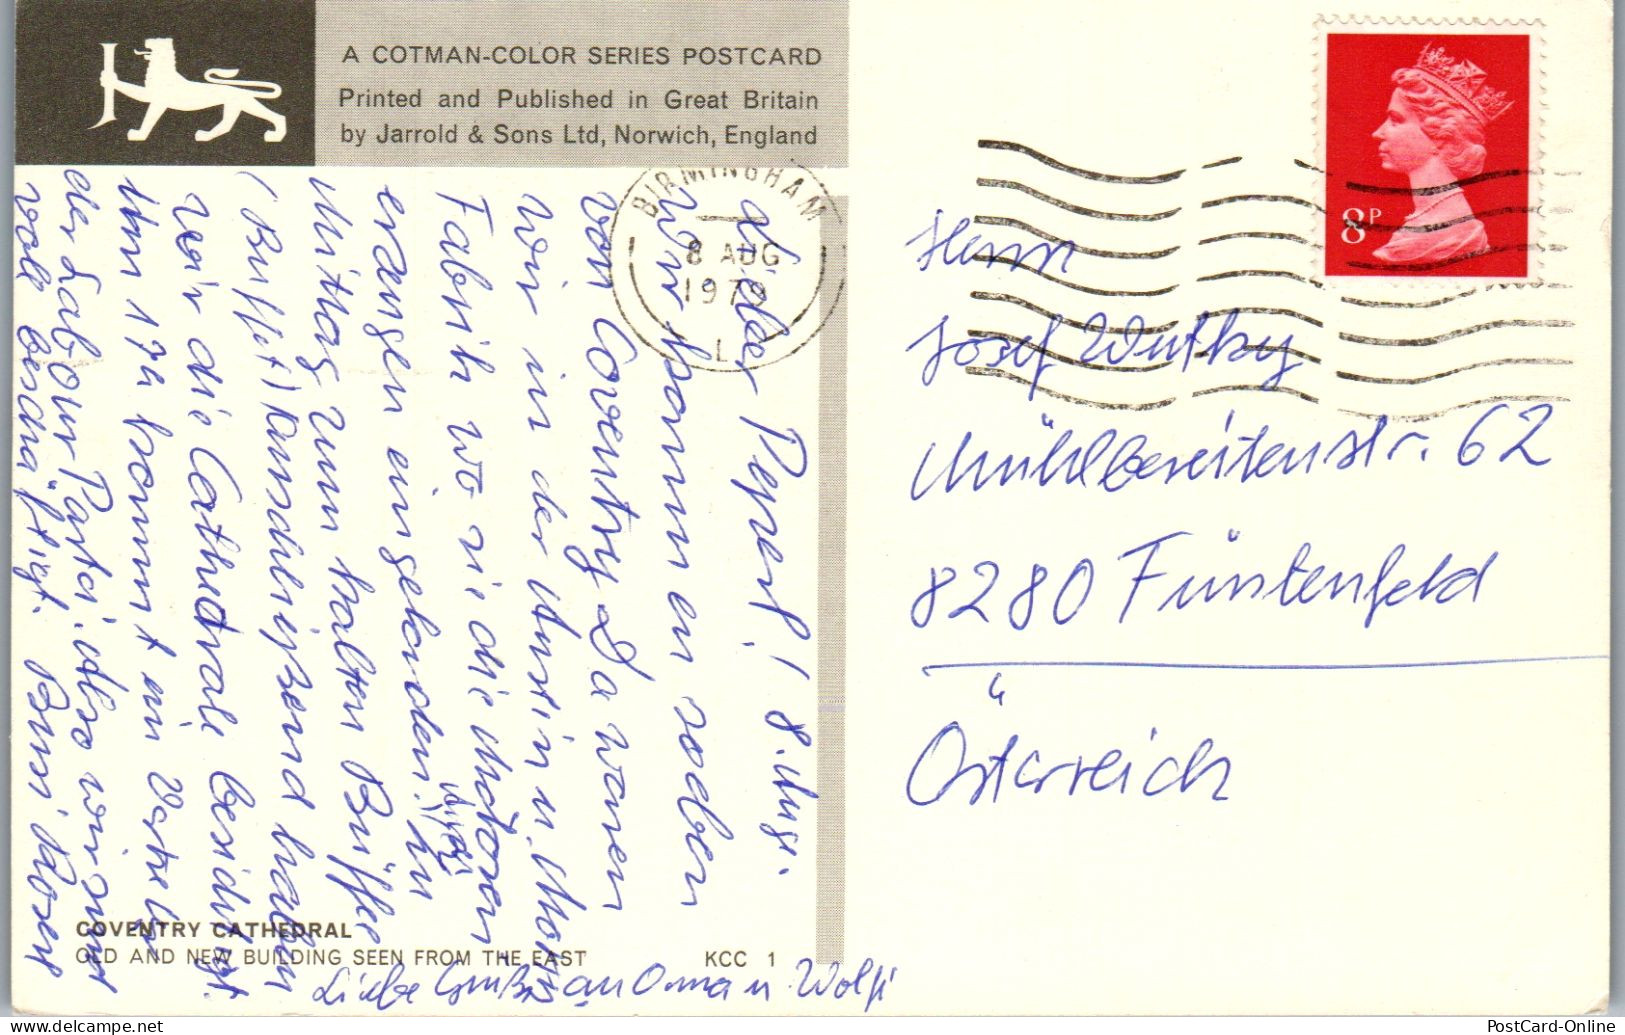 A COTMAN-COLOR SERIES POSTCARD
Printed and Published in Great Britain
by Jarrold & Sons Ltd, Norwich, England
BIRMINGHAM
8 AUG
1979
L
8P
Lieber Peperl! 8. Aug.
Wir kommen soeben
von Coventry. Da waren
wir in der Austin u. Morris
Fabrik wo sie die Motoren
erzeugen eingeladen. Zu
Mittag zum kalten Büffee
(Buffet) Anschließend haben
wir die Cathetrale besichtigt.
Um 17h kommt ein Vertreter
der Labour Partei. Also wir sind
voll beschäftigt. Bussi
Liebe Grüße an Oma u. Wolfi
Herrn
Josef Wutky
Mühlbreitenstr. 62
8280 Fürstenfeld
Österreich
COVENTRY CATHEDRAL
OLD AND NEW BUILDING SEEN FROM THE EAST
KCC 1
PostCard-Online
www.delcampe.net